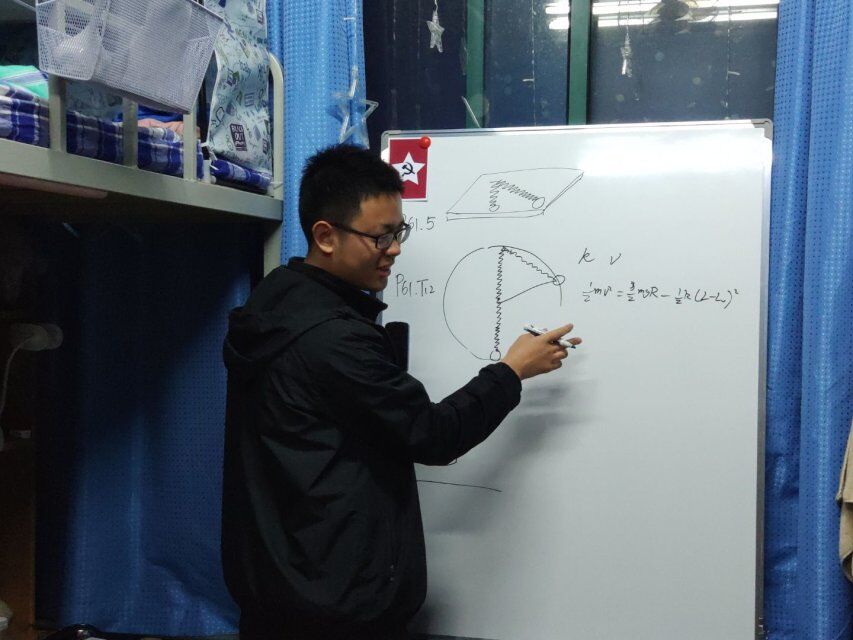 61.5
P61.T12
k v
½mv² = 3/2 mgR - ½k(L-L)²